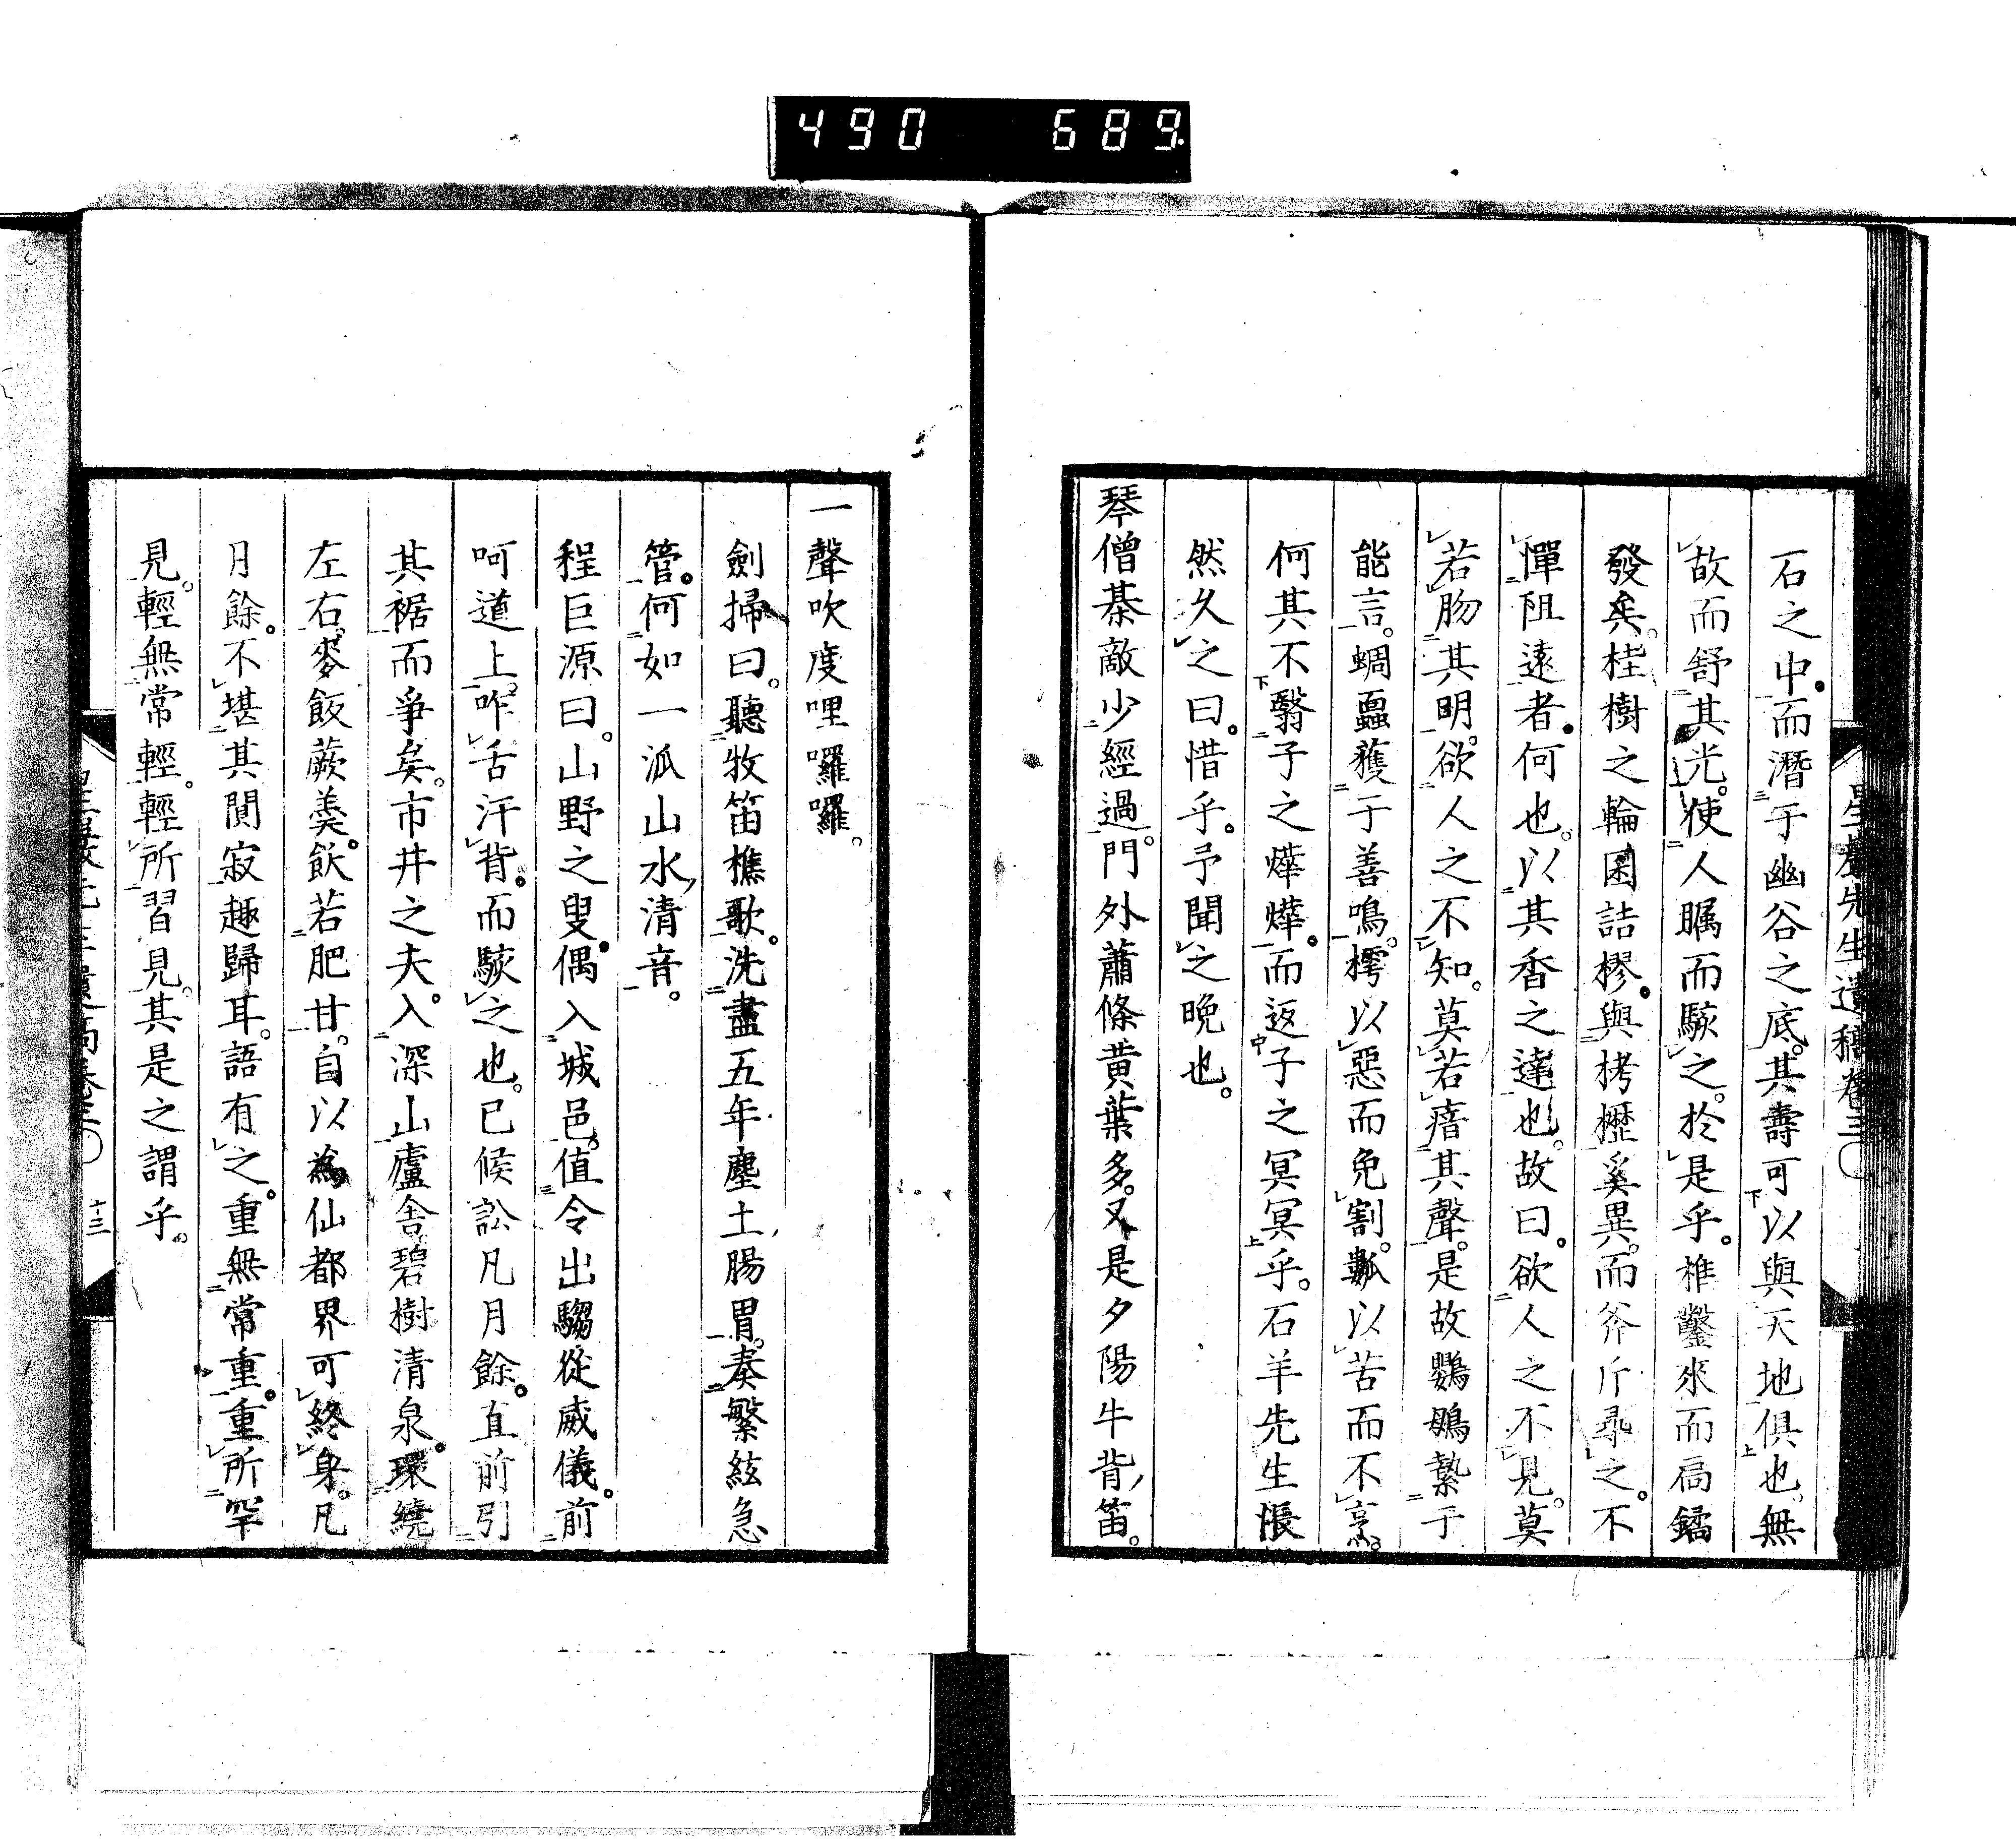 490 689
石之中。而潛于幽谷之底。其壽可以與天地俱也。無
故而舒其光。使人矚而駭之。於是乎。椎鑿來而扃鐍
發矣。桂樹之輪囷詰樛。與栲櫪奚異。而斧斤尋之。不
憚阻遠者。何也。以其香之達也。故曰。欲人之不見。莫
若肳其明。欲人之不知。莫若瘖其聲。是故鸚鵡縶于
能言。蜩蝱蠖于善鳴。樗以惡而免割。瓢以苦而不烹。
何其不翳子之燁燁。而返子之冥冥乎。石羊先生悵
然久之曰。惜乎。予聞之晩也。
琴僧棊敵少經過。門外蕭條黃葉多。又是夕陽牛背笛。
一聲吹度哩囉囉。
劍掃曰。聽牧笛樵歌。洗盡五年塵土腸胃。奏繁絃急
管。何如一派山水清音。
程巨源曰。山野之叟。偶入城邑。值令出騶從威儀。前
呵道上。咋舌汗背。而駭之也。已候訟凡月餘。直前引
其裾而爭矣。市井之夫。入深山廬舍。碧樹清泉。環繞
左右。麥飯蕨羹。飲若肥甘。自以為仙都界可終身。凡
月餘。不堪其閴寂趣歸耳。語有之。重無常重。重所罕
見。輕無常輕。輕所習見。其是之謂乎。
星巖先生遺稿卷三
十三